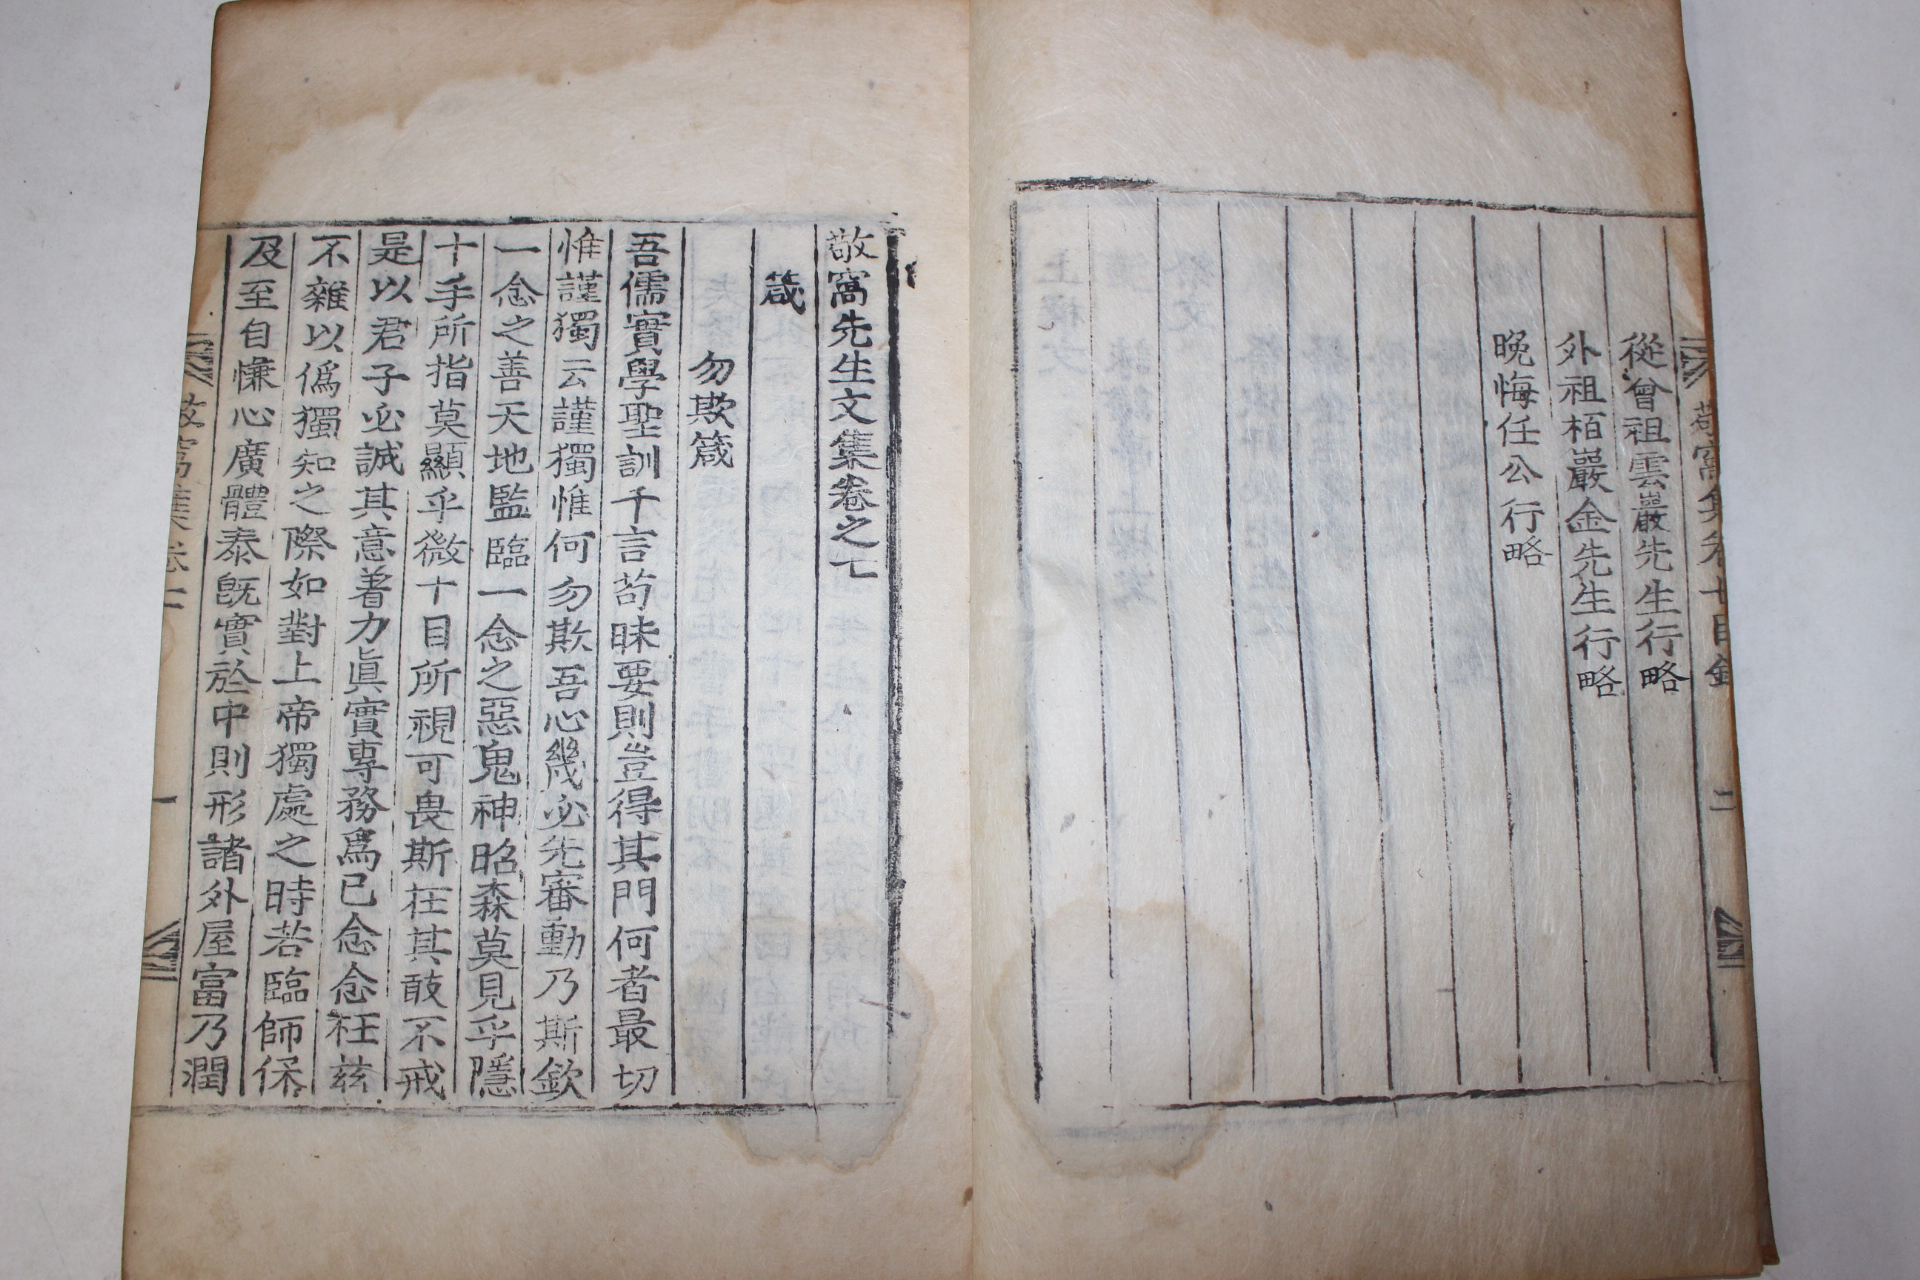 敬窩集卷七目錄 二
從曾祖雲巖先生行略
外祖栢巖金先生行略
晩悔任公行略
敬窩先生文集卷之七
箴
勿欺箴
吾儒實學聖訓千言苟昧要則豈得其門何者最切
惟謹獨云謹獨惟何勿欺吾心幾必先審動乃斯欽
一念之善天地監臨一念之惡鬼神昭森莫見乎隱
十手所指莫顯乎微十目所視可畏斯在其敢不戒
是以君子必誠其意着力眞實專務爲己念念在玆
不雜以僞獨知之際如對上帝獨處之時若臨師保
及至自慊心廣體泰旣實於中則形諸外屋富乃潤
敬窩集卷七 一